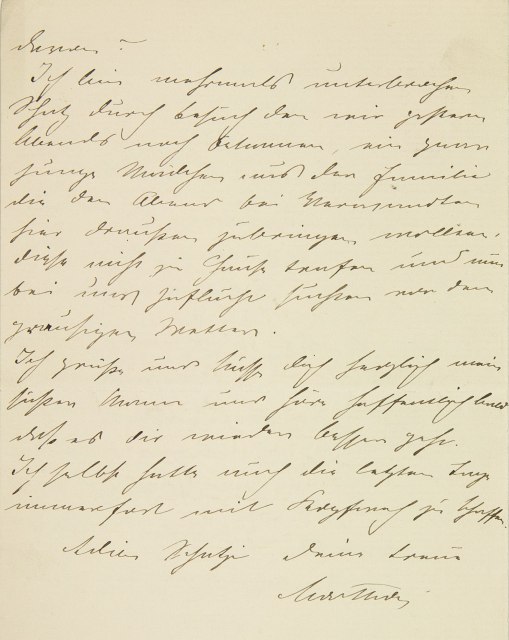 davon?
Ich bin mehrmals unterbrochen
Schatz durch besuch den wir gestern
Abends noch bekamen, ein paar
junge Mädchen aus der Familie
die den Abend bei Verwandten
hier draußen zubringen wollten,
diese nicht zu Hause trafen und nun
bei uns Zuflucht suchten vor dem
grausigen Wetter.
Ich grüße und küsse Dich herzlich mein
süßer Mann und höre hoffentlich bald
daß es dir wieder besser geht.
Ich selbst hatte auch die letzten Tage
immerfort mit Kopfweh zu schaffen.
Adieu Schatzi deine treue